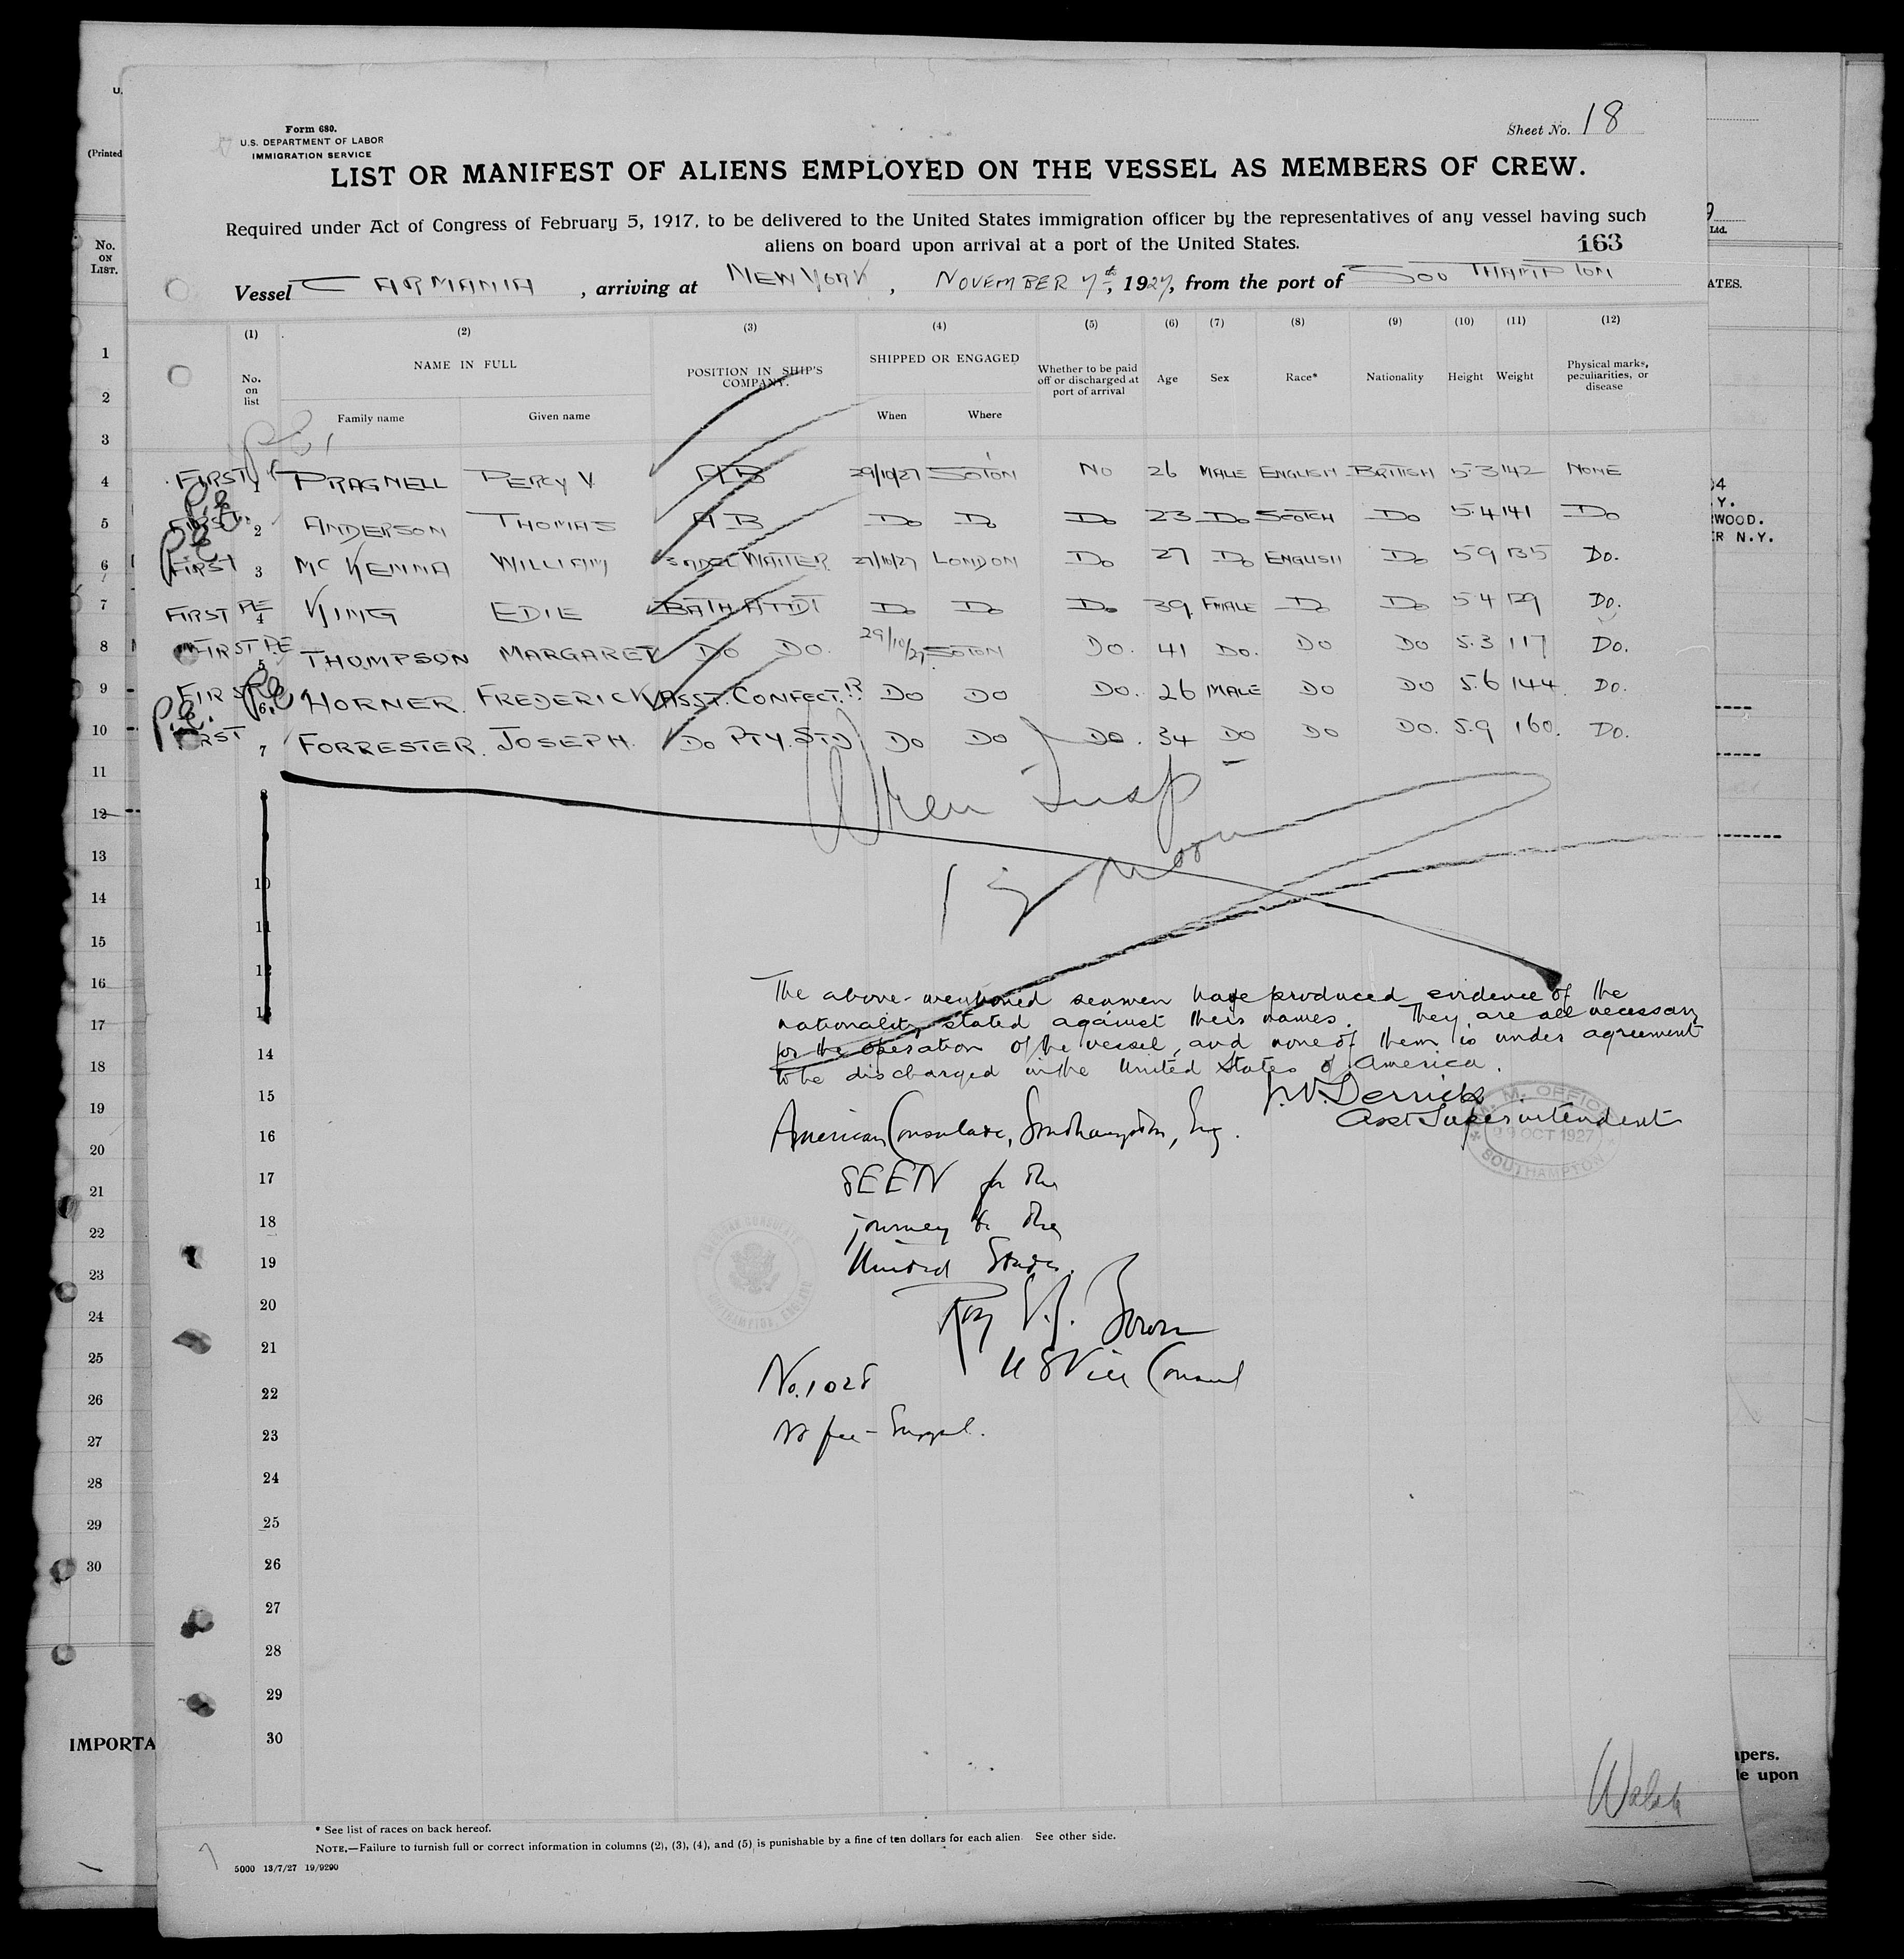 Form 680.
U.S. DEPARTMENT OF LABOR
IMMIGRATION SERVICE
Sheet No. 18
LIST OR MANIFEST OF ALIENS EMPLOYED ON THE VESSEL AS MEMBERS OF CREW.
Required under Act of Congress of February 5, 1917, to be delivered to the United States immigration officer by the representatives of any vessel having such
aliens on board upon arrival at a port of the United States.
163
Vessel CARMANIA, arriving at NEW YORK, NOVEMBER 7th, 1927, from the port of SOUTHAMPTON
(1) (2) (3) (4) (5) (6) (7) (8) (9) (10) (11) (12)
No. on list NAME IN FULL POSITION IN SHIP'S COMPANY. SHIPPED OR ENGAGED Whether to be paid off or discharged at port of arrival Age Sex Race* Nationality Height Weight Physical marks, peculiarities, or disease
Family name Given name When Where
FIRST 1 PRAGNELL PERCY V AB 29/10/27 SOTON NO 26 MALE ENGLISH BRITISH 5.3 142 NONE
FIRST 2 ANDERSON THOMAS AB DO DO DO 23 DO SCOTCH DO 5.4 141 DO
FIRST 3 McKENNA WILLIAM WAITER 27/10/27 LONDON DO 27 DO ENGLISH DO 5 9 135 DO.
FIRST PE 4 KING EDIE BATH ATTDT DO DO DO 39 FMALE DO DO 5 4 129 DO.
FIRST PE 5 THOMPSON MARGARET DO DO. 29/10/27 SOTON DO. 41 DO. DO DO 5.3 117 DO.
FIRST 6 HORNER. FREDERICK ASST. CONFECT.R DO DO DO. 26 MALE DO DO 5.6 144. DO.
FIRST 7 FORRESTER. JOSEPH. DO PTY. STD DO DO DO. 34 DO DO DO. 5.9 160. DO.
8
9
10
11
12
13
14
15
16
17
18
19
20
21
22
23
24
25
26
27
28
29
30
The above-mentioned seamen have produced evidence of the
nationality stated against their names. They are all necessary
for the operation of the vessel, and none of them is under agreement
to be discharged in the United States of America.
Derrick
Asst Superintendent
M. M. OFFICE
OCT 1927
SOUTHAMPTON
American Consulate, Southampton, Eng.
SEEN for the
journey to the
United States.
Roy Brown
U S Vice Consul
No. 1028
No fee -
Walsh
* See list of races on back hereof.
NOTE.—Failure to furnish full or correct information in columns (2), (3), (4), and (5) is punishable by a fine of ten dollars for each alien. See other side.
5000 13/7/27 19/9290
(Printed
No. ON LIST.
1
2
3
4
5
6
7
8
9
10
11
12
13
14
15
16
17
18
19
20
21
22
23
24
25
26
27
28
29
30
IMPORTA
Ltd.
ATES.
Y.
WOOD.
R N.Y.
apers.
le upon